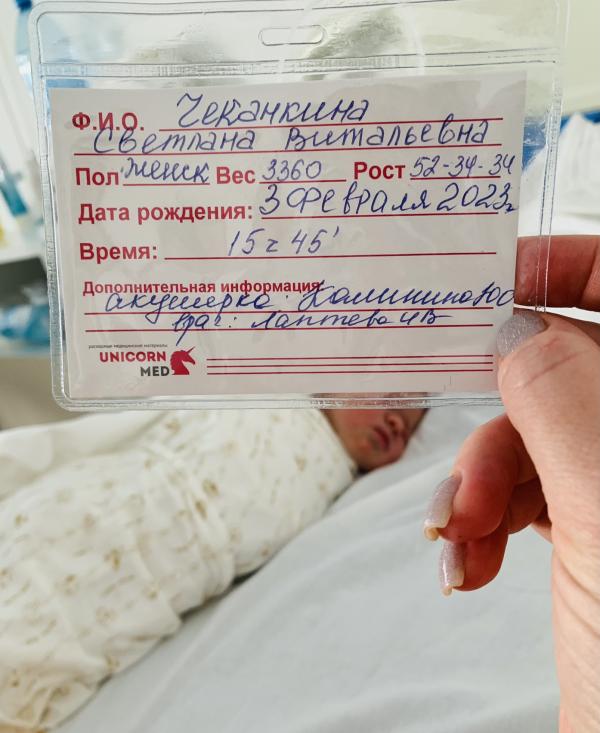 Ф.И.О. Чеканкина
Светлана Витальевна
Пол женск Вес 3360 Рост 52-34-34
Дата рождения: 3 Февраля 2023г
Время: 15 ч 45'
Дополнительная информация:
акушерка: Калинина Ю
врач: Лаптева И В
расходные медицинские материалы
UNICORN
MED